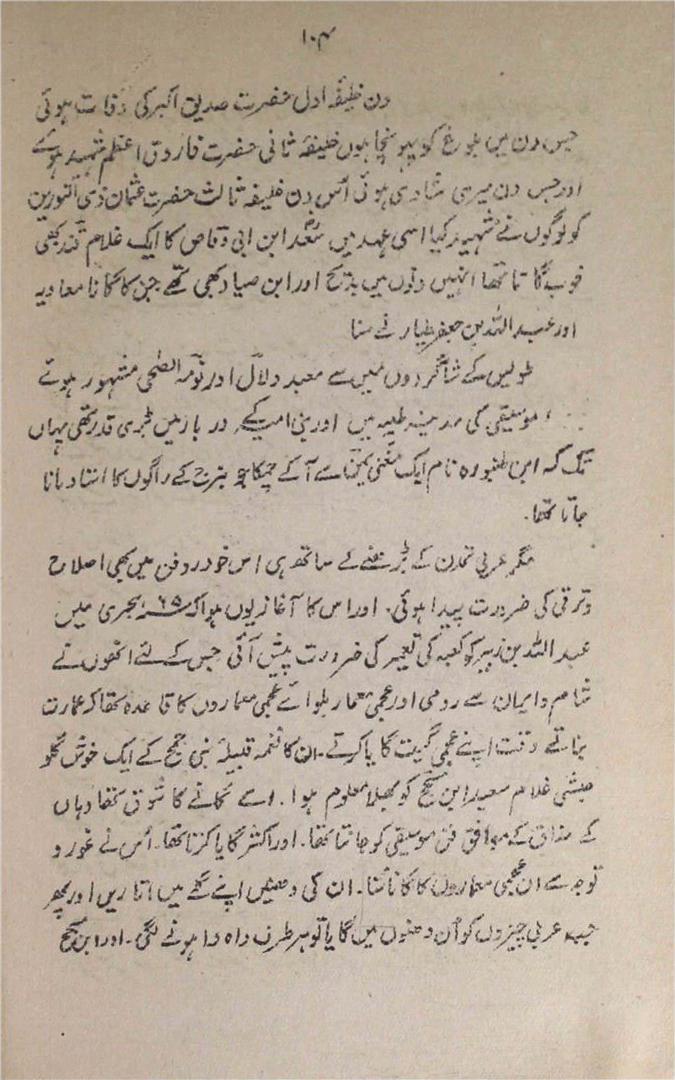 ۱۰۴
دن خلیفہ اول حضرت صدیق اکبر کی وفات ہوئی
جس دن میں بلوغ کو پہونچا ہوں خلیفۂ ثانی حضرت فاروق اعظم شہید ہوئے
اور جس دن میری شادی ہوئی اُس دن خلیفہ ثالث حضرت عثمان ذی النورین
کو لوگوں نے شہید کیا اسی عہد میں سعدؓ ابن ابی وقاص کا ایک غلام قند بھی
خوب گاتا تھا انہیں دنوں میں بدیح اور ابن صیاد بھی تھے جن کا گانا معاویہ
اور عبداللہ بن جعفر طیار نے سنا
طویس کے شاگردوں میں سے معبد دلاّل اور نومۃ الضحی مشہور ہوئے
موسیقی کی مدینہ طیبہ میں اور بنی امیہ کے دربار میں بڑی قدر تھی یہاں
تک کہ ابن طنبورہ نام ایک مغنی یمن سے آ کے چمکا جو ہزج کے راگوں کا استاد مانا
جاتا تھا۔
مگر عربی تمدن کے بڑھنے کے ساتھ ہی اس خودرو فن میں بھی اصلاح
و ترقی کی ضرورت پیدا ہوئی۔ اور اس کا آغاز یوں ہوا کہ ۶۵ ہجری میں
عبداللہ بن زبیر کو کعبہ کی تعمیر کی ضرورت پیش آئی جس کے لئے انھوں نے
شام و ایران سے رومی اور عجمی معمار بلوائے عجمی معماروں کا قاعدہ تھا کہ عمارت
بناتے وقت اپنے عجمی گیت گایا کرتے۔ ان کا نغمہ قبیلہ بنی جمح کے ایک خوش گلو
حبشی غلام سعید ابن مسجح کو بھلا معلوم ہوا۔ اسے گانے کا شوق تھا وہاں
کے مذاق کے موافق فن موسیقی کو جانتا تھا۔ اور اکثر گایا کرتا تھا۔ اُس نے غور و
توجہ سے ان عجمی معماروں کا گانا سُنا۔ ان کی دھنیں اپنے گلے میں اتاریں اور پھر
جب عربی چیزوں کو اُن دھنوں میں گایا تو ہر طرف واہ وا ہونے لگی۔ اور ابن مسجح